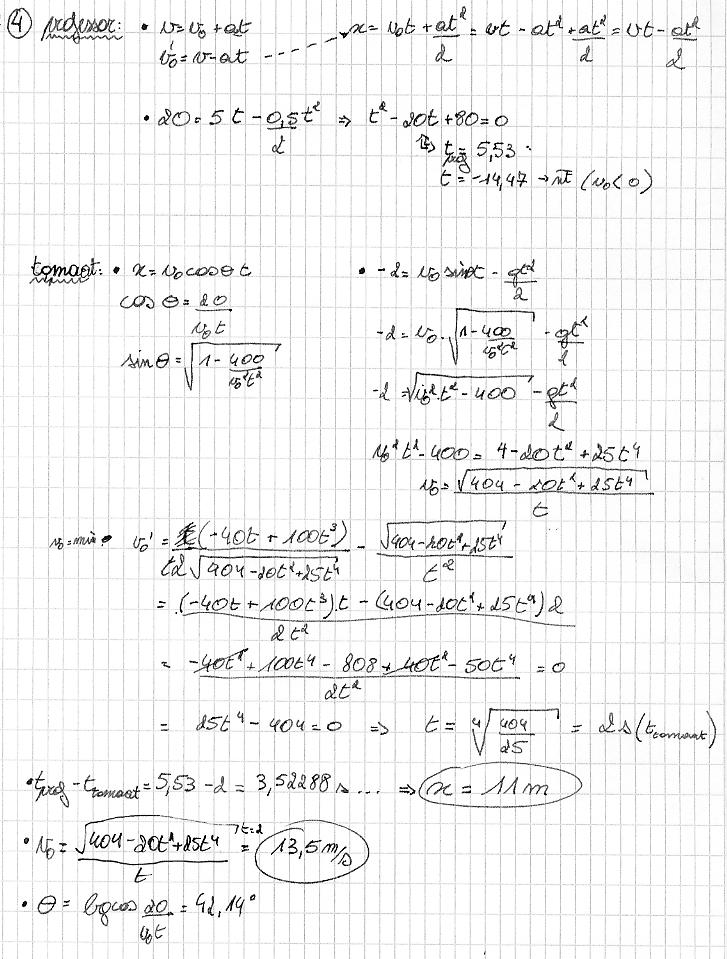 ④ professor: • v = v₀ + at → x = v₀t + at²/2 = vt - at² + at²/2 = vt - at²/2
v₀' = v - at
• 20 = 5t - 0,5t²/2 ⇒ t² - 20t + 80 = 0
↳ t_prof = 5,53
t = -14,47 → (v₀ < 0)
tomaat: • x = v₀ cos θ t
cos θ = 20/v₀t
sin θ = √(1 - 400/v₀²t²)
• -2 = v₀ sin θ t - gt²/2
-2 = v₀ · √(1 - 400/v₀²t²) - gt²/2
-2 = √(v₀² · t² - 400) - gt²/2
v₀²t² - 400 = 4 - 20t² + 25t⁴
v₀ = √(404 - 20t² + 25t⁴)/t
v₀ = min: v₀' = (-40t + 100t³)/(t2√(404 - 20t² + 25t⁴)) - √(404 - 20t² + 25t⁴)/t²
= ((-40t + 100t³) · t - (404 - 20t² + 25t⁴)2)/2t²
= (-40t² + 100t⁴ - 808 + 40t² - 50t⁴)/2t² = 0
= 25t⁴ - 404 = 0 ⇒ t = ⁴√(404/25) = 2 s (t_tomaat)
• t_prof - t_tomaat = 5,53 - 2 = 3,52288 s ... ⇒ x = 11 m
• v₀ = √(404 - 20t² + 25t⁴)/t t=2 = 13,5 m/s
• θ = bgcos 20/v₀t = 42,14°